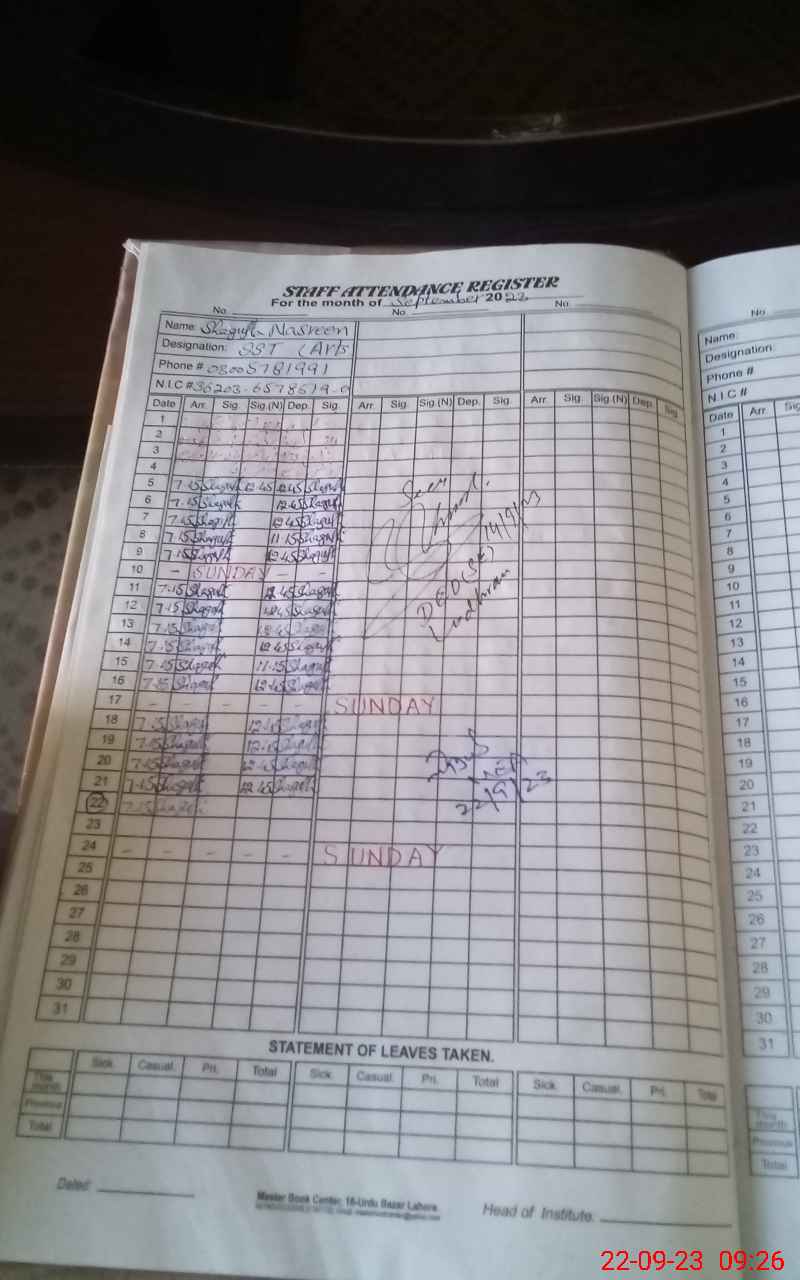 STAFF ATTENDANCE REGISTER
For the month of September 2023
No. No. No.
Name: Shagufta Nasreen
Designation: SST (Arts
Phone #
N.I.C #
Date Arr. Sig. Sig.(N) Dep. Sig. Arr. Sig. Sig.(N) Dep. Sig. Arr. Sig. Sig.(N) Dep. Sig.
1
2
3
4
5 7-15 Shagufta 12.45 12.45 Shagufta
6 7-15 Shagufta 12.45 Shagufta
7 7-15 Shagufta 12.45 Shagufta
8 7-15 Shagufta 11.15 Shagufta
9 7-15 Shagufta 12.45 Shagufta
10 - SUNDAY - -
11 7-15 Shagufta 12.45 Shagufta
12 7-15 Shagufta 12.45 Shagufta
13 7-15 Shagufta 12.45 Shagufta
14 7-15 Shagufta 12.45 Shagufta
15 7-15 Shagufta 11-15 Shagufta
16 7-15 Shagufta 12.45 Shagufta
17 - - - - - SUNDAY
18 7-15 Shagufta 12-45 Shagufta
19 7-15 Shagufta 12-45 Shagufta
20 7-15 Shagufta 12-45 Shagufta
21 7-15 Shagufta 12.45 Shagufta
22 7-15 Shagufta
23
24 - - - - - SUNDAY
25
26
27
28
29
30
31
Seen
14/9/23
DEO (SE)
Lodhran
22/9/23
STATEMENT OF LEAVES TAKEN.
Sick. Casual. Pri. Total Sick. Casual. Pri. Total Sick. Casual. Pri. Total
This month
Previous
Total
Dated:
Master Book Center, 16-Urdu Bazar Lahore
Head of Institute.
No.
Name:
Designation:
Phone #
N.I.C #
Date Arr.
1
2
3
4
5
6
7
8
9
10
11
12
13
14
15
16
17
18
19
20
21
22
23
24
25
26
27
28
29
30
31
This month
Previous
Total
22-09-23 09:26